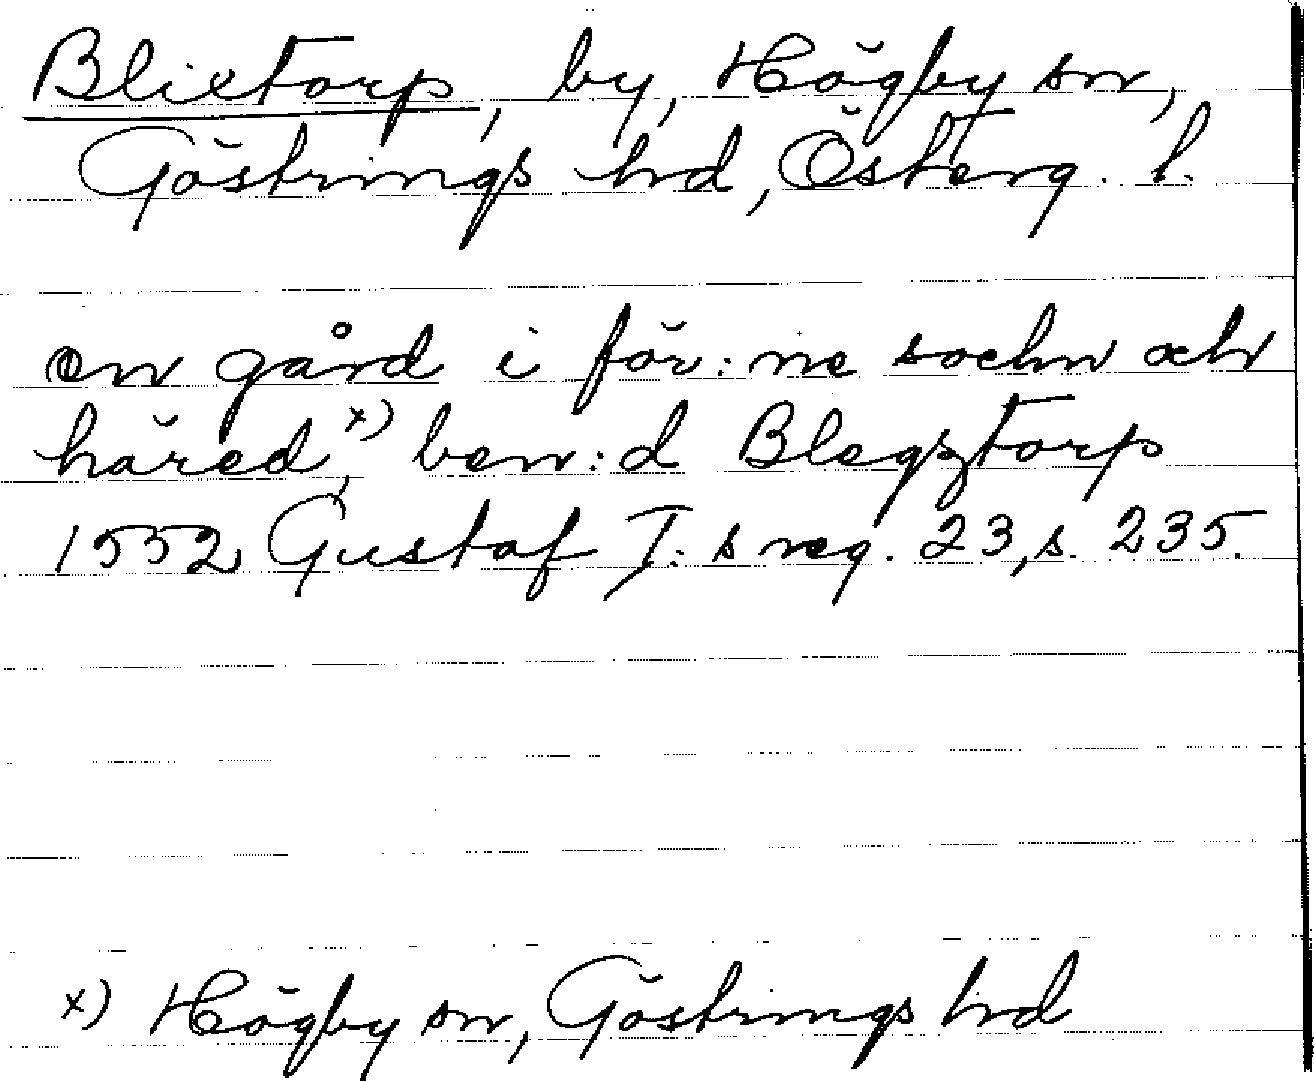 Blixtorp, by, Högby sn,
Göstrings hrd, Österg. l.
en gård i för:ne sochn och
häred,x) ben:d Blegztorp
1552 Gustaf I:s reg. 23, s. 235.
x) Högby sn, Göstrings hrd